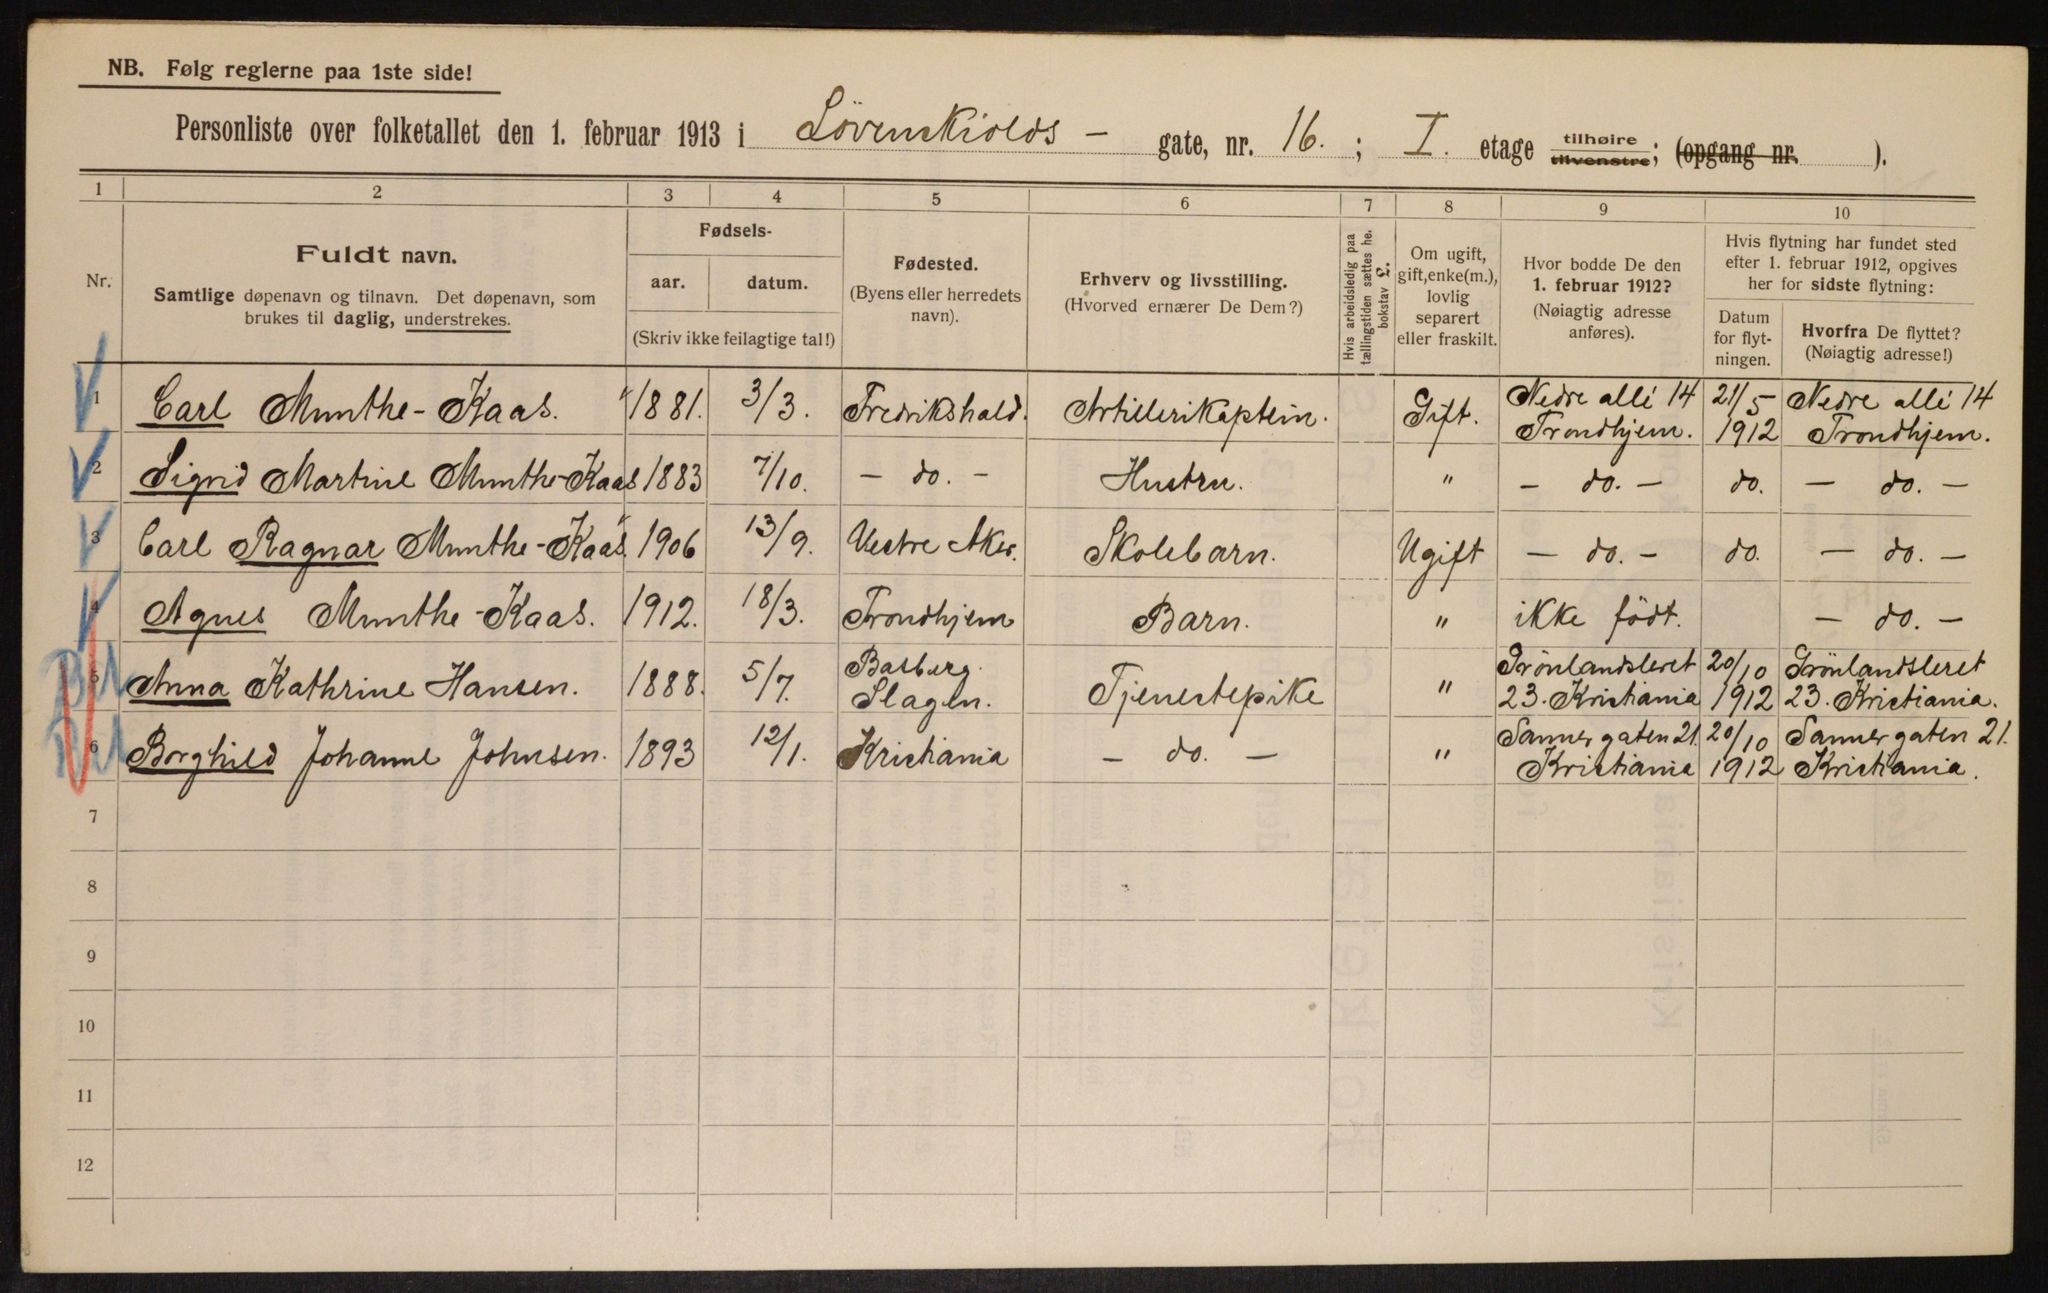 NB. Følg reglerne paa 1ste side!
Personliste over folketallet den 1. februar 1913 i Lövenskiolds - gate, nr. 16. ; I. etage tilhøire tilvenstre; (opgang nr. ).
1 2 3 4 5 6 7 8 9 10
Nr.
Fuldt navn.
Samtlige døpenavn og tilnavn. Det døpenavn, som
brukes til daglig, understrekes.
Fødsels-
aar. datum.
(Skriv ikke feilagtige tal!)
Fødested.
(Byens eller herredets
navn).
Erhverv og livsstilling.
(Hvorved ernærer De Dem?)
Hvis arbeidsledig paa
tællingstiden sættes he.
bokstav L.
Om ugift,
gift, enke(m.),
lovlig
separert
eller fraskilt.
Hvor bodde De den
1. februar 1912?
(Nøiagtig adresse
anføres).
Hvis flytning har fundet sted
efter 1. februar 1912, opgives
her for sidste flytning:
Datum
for flyt-
ningen.
Hvorfra De flyttet?
(Nøiagtig adresse!)
1 Carl Munthe-Kaas. 1881. 3/3. Fredrikshald. Artillerikaptein. Gift. Nedre allé 14 Trondhjem. 21/5 1912 Nedre allé 14 Trondhjem.
2 Sigrid Martine Munthe-Kaas 1883 7/10. - do. - Hustru. " - do. - do. - do. -
3 Carl Ragnar Munthe-Kaas 1906 13/9. Vestre Aker. Skolebarn. Ugift - do. - do. - do. -
4 Agnes Munthe-Kaas. 1912. 18/3. Trondhjem Barn. " ikke födt. - do. -
5 Anna Kathrine Hansen. 1888. 5/7. Basberg. Slagen. Tjenestepike " Grönlandsleret 23. Kristiania 20/10 1912 Grönlandsleret 23. Kristiania.
6 Borghild Johanne Johnsen. 1893 12/1. Kristiania - do. - " Sannergaten 21. Kristiania 20/10 1912 Sannergaten 21. Kristiania.
7
8
9
10
11
12